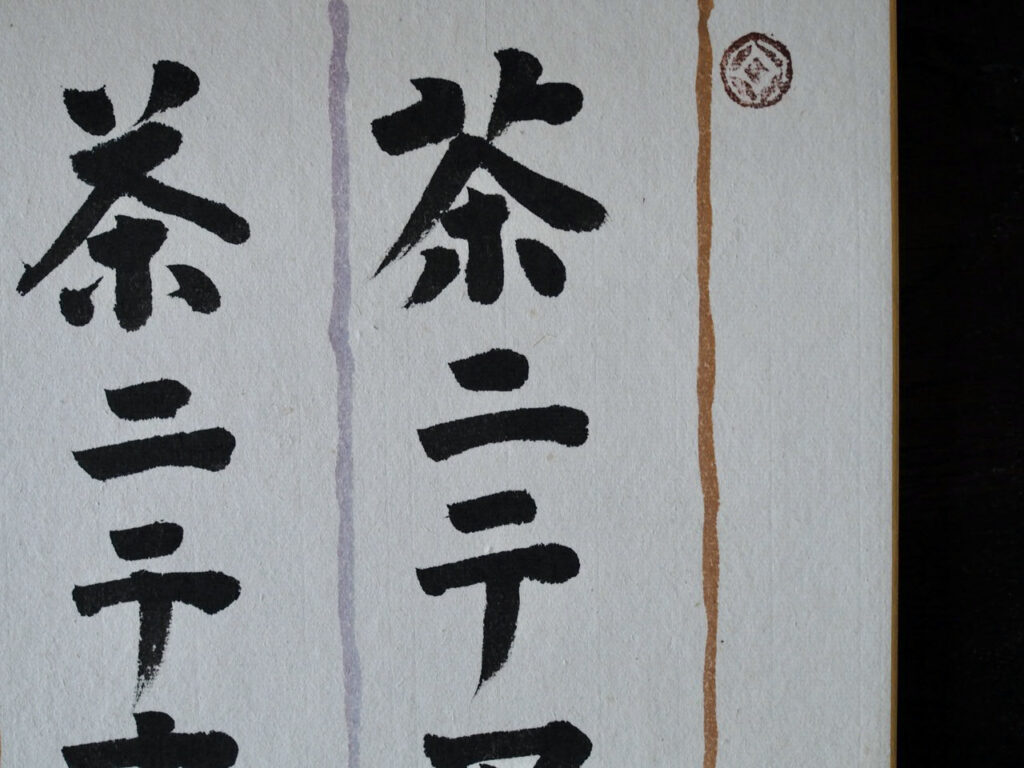 茶ニテ
茶ニテ